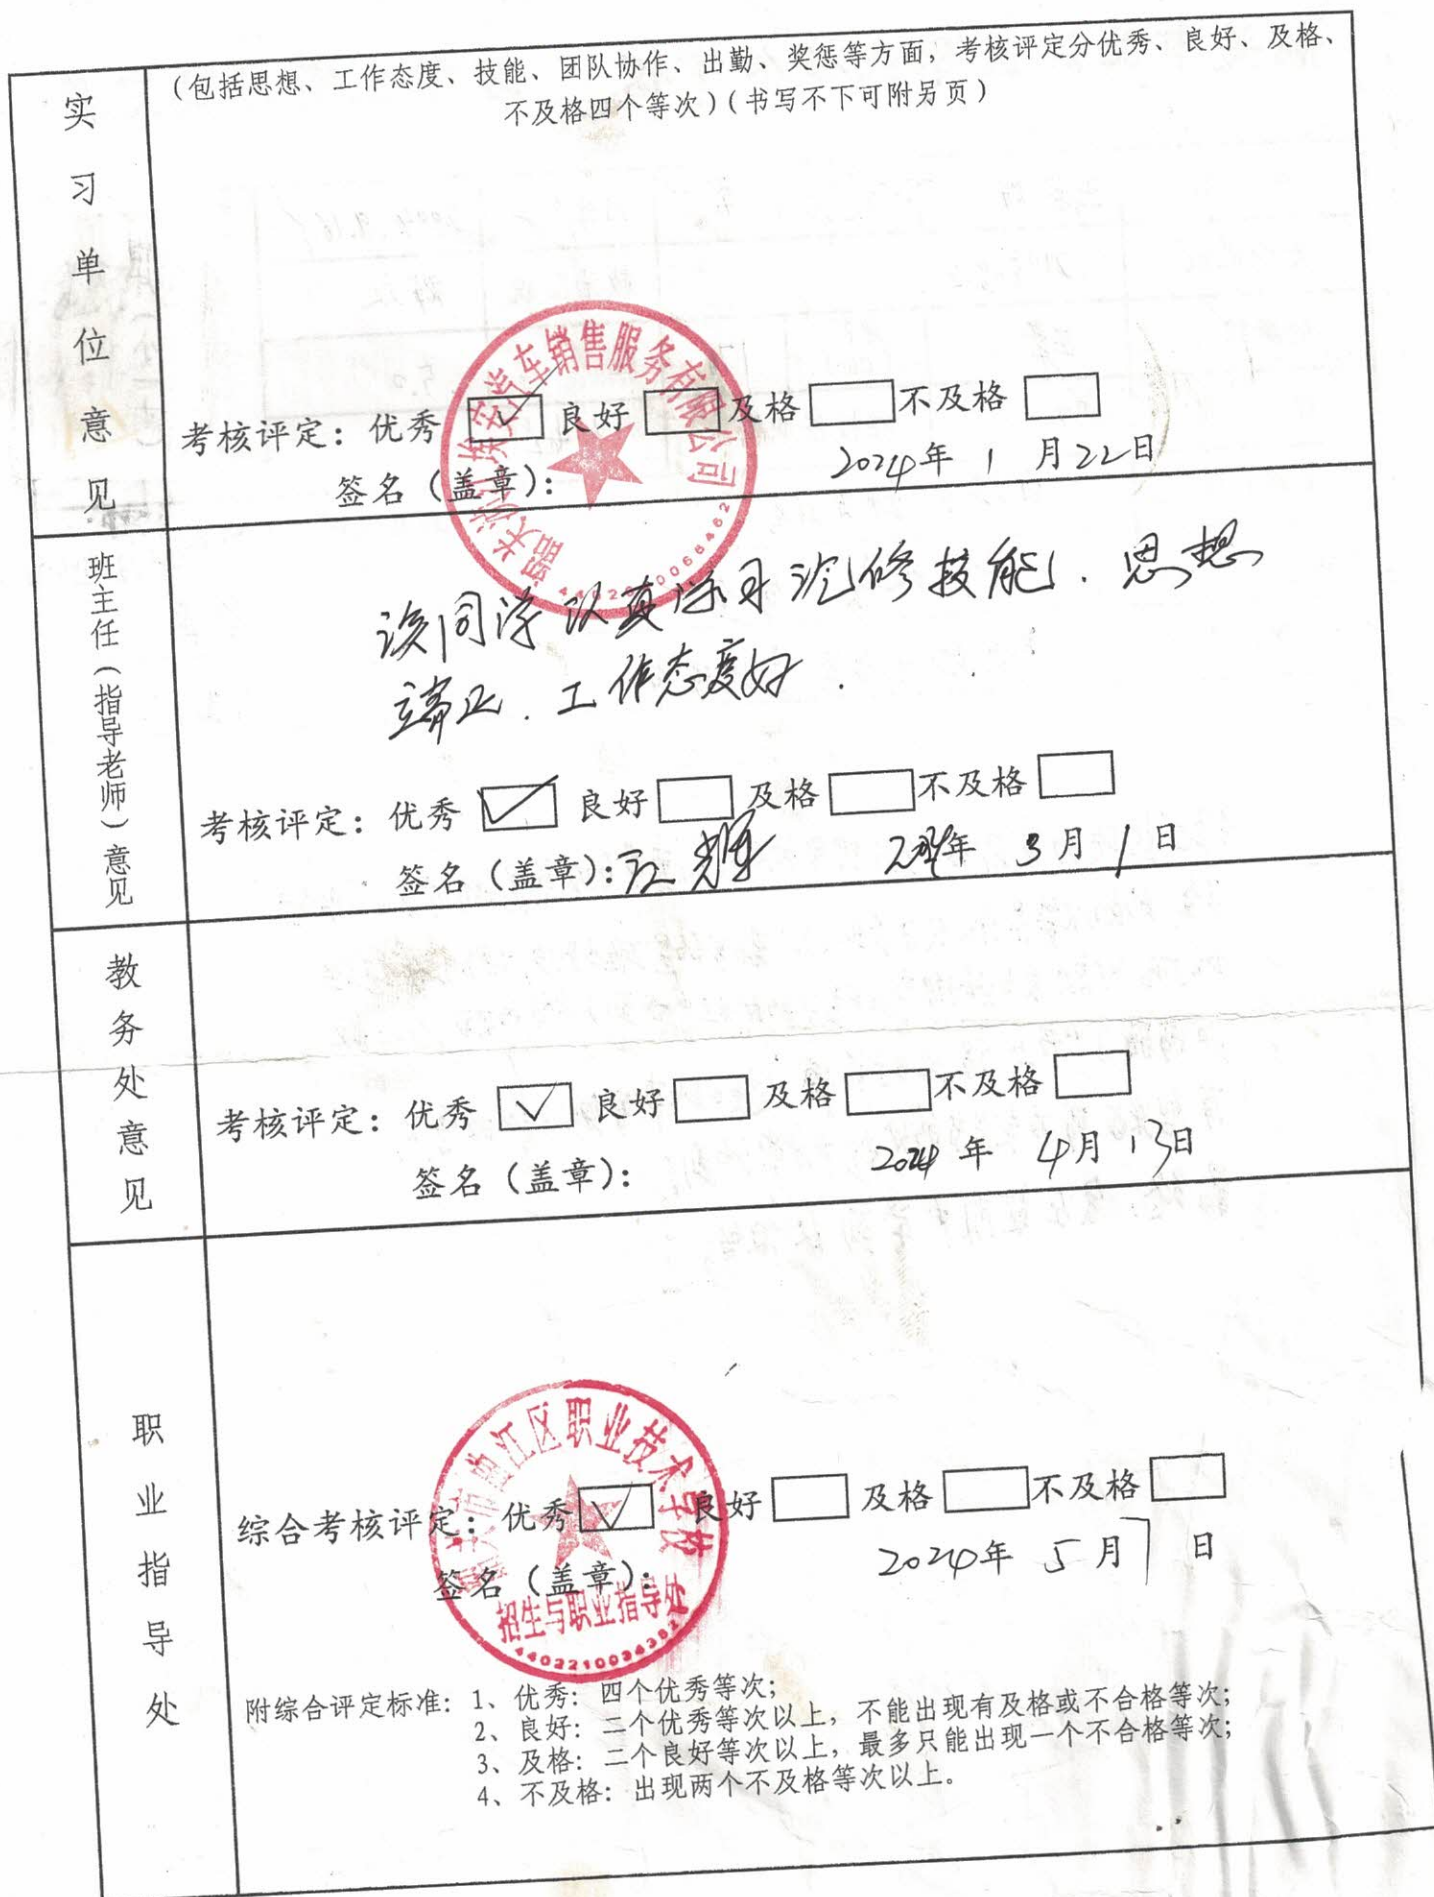 实习单位意见
(包括思想、工作态度、技能、团队协作、出勤、奖惩等方面，考核评定分优秀、良好、及格、
不及格四个等次)(书写不下可附另页)
考核评定：优秀 良好 及格 不及格
签名（盖章）： 2024年 1 月22日
埃安汽车销售服务有限公司
班主任（指导老师）意见
该同学认真学习汽修技能．思想
端正．工作态度好．
考核评定：优秀 良好 及格 不及格
签名（盖章）： 年 3月 1 日
教务处意见
考核评定：优秀 良好 及格 不及格
签名（盖章）： 2024 年 4月 13日
职业指导处
韶关市曲江区职业技术学校
综合考核评定：优秀 良好 及格 不及格
签名（盖章）： 2024年 5月 7 日
招生与职业指导处
附综合评定标准：1、优秀：四个优秀等次；
2、良好：二个优秀等次以上，不能出现有及格或不合格等次；
3、及格：二个良好等次以上，最多只能出现一个不合格等次；
4、不及格：出现两个不及格等次以上。